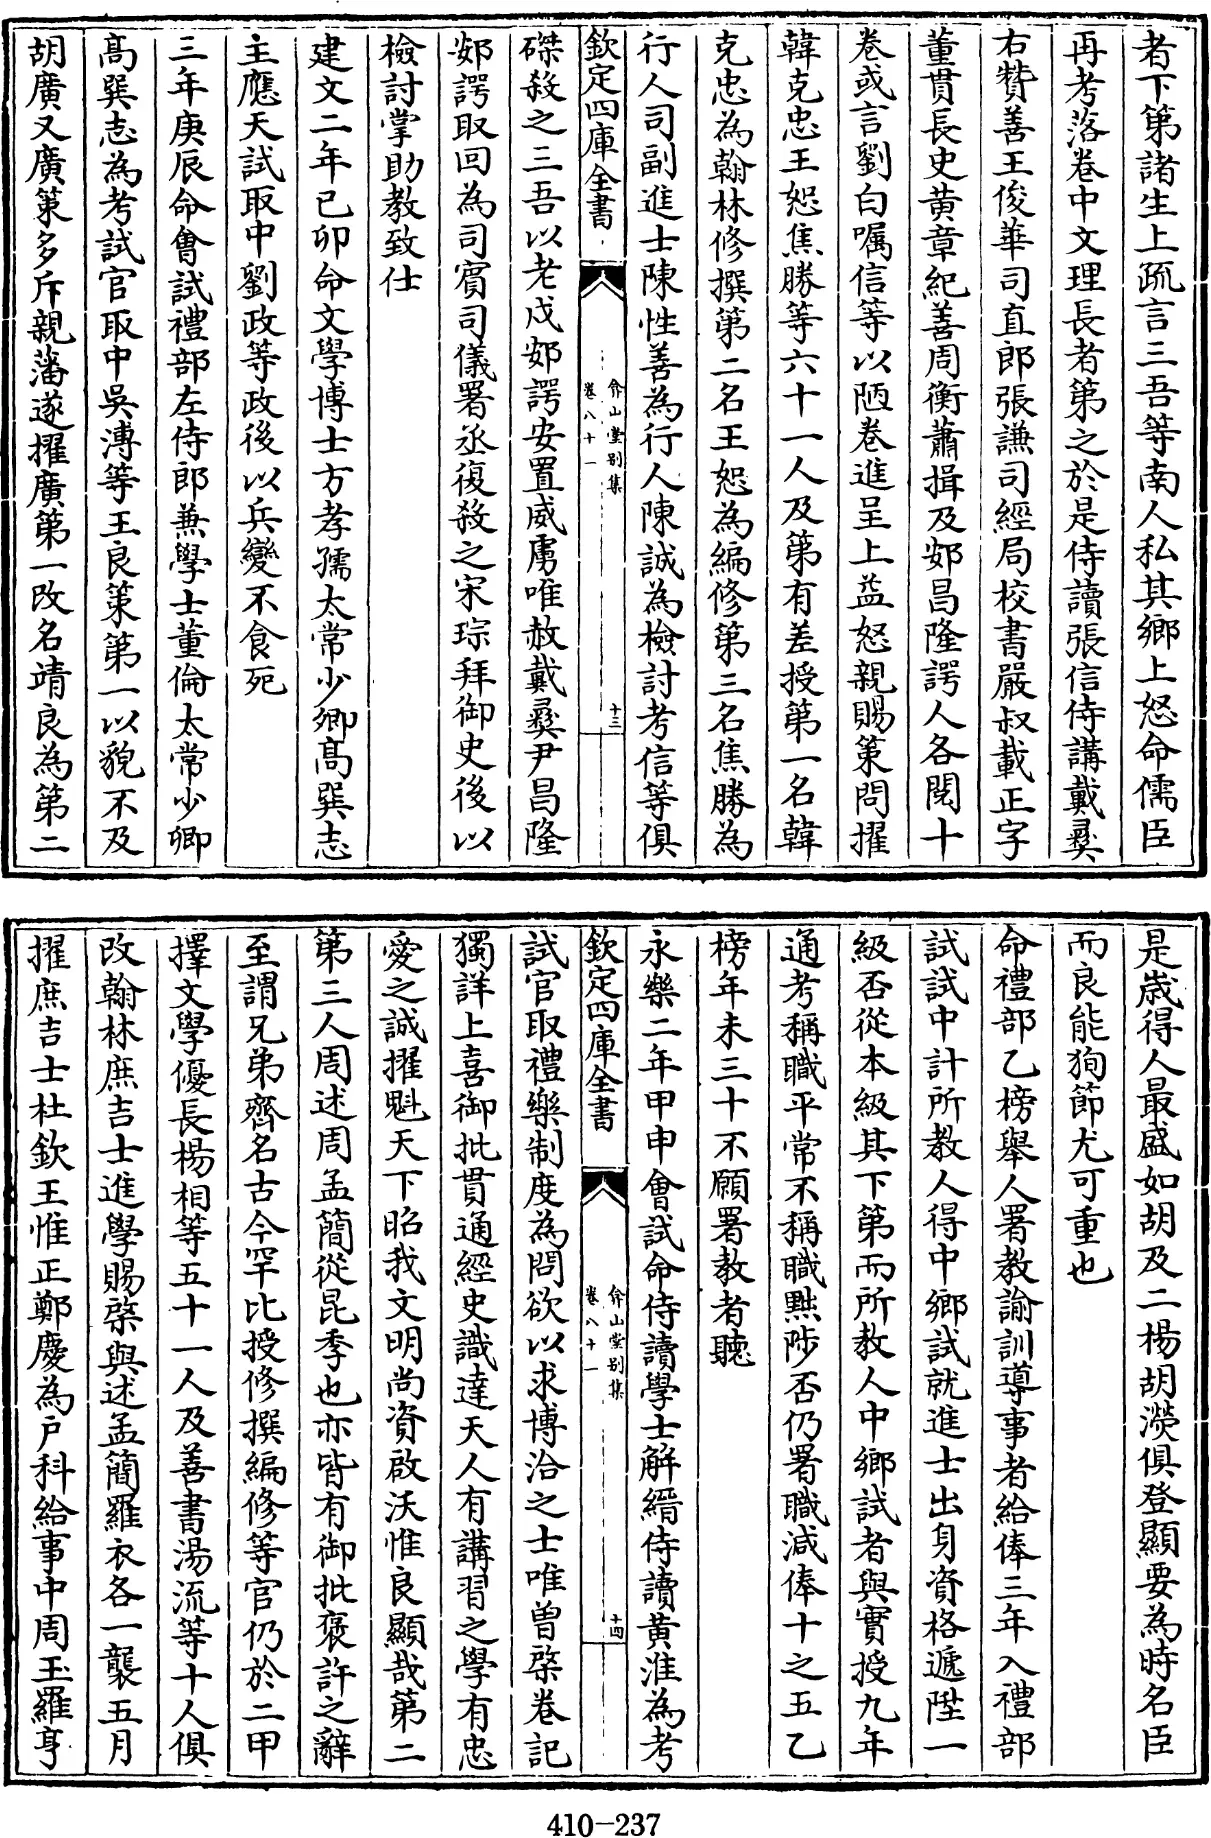 者下第諸生上疏言三吾等南人私其鄉上怒命儒臣
再考落卷中文理長者第之於是侍讀張信侍講戴彞
右賛善王俊華司直郎張謙司經局校書嚴叔載正字
董貫長史黄章紀善周衡蕭揖及郟昌隆諤人各閱十
卷或言劉白嘱信等以陋卷進呈上益怒親賜策問擢
韓克忠王恕焦勝等六十一人及第有差授第一名韓
克忠為翰林修撰第二名王恕為編修第三名焦勝為
行人司副進士陳性善為行人陳誠為檢討考信等俱
欽定四庫全書
弇山堂别集
卷八十一
十三
磔殺之三吾以老戍郟諤安置威虜唯赦戴彞尹昌隆
郟諤取回為司賔司儀署丞復殺之宋琮拜御史後以
檢討掌助教致仕
建文二年已卯命文學博士方孝孺太常少卿髙巽志
主應天試取中劉政等政後以兵變不食死
三年庚辰命會試禮部左侍郎兼學士董倫太常少卿
髙巽志為考試官取中吳溥等王良策第一以貌不及
胡廣又廣策多斥親藩遂擢廣第一改名靖良為第二
是歲得人最盛如胡及二楊胡濙俱登顯要為時名臣
而良能狥節尤可重也
命禮部乙榜舉人署教諭訓導事者給俸三年入禮部
試試中計所教人得中鄉試就進士出身資格遞陞一
級否從本級其下第而所教人中鄉試者與實授九年
通考稱職平常不稱職黜陟否仍署職減俸十之五乙
榜年未三十不願署教者聽
永樂二年甲申會試命侍讀學士解縉侍讀黄淮為考
欽定四庫全書
弇山堂别集
卷八十一
十四
試官取禮樂制度為問欲以求博洽之士唯曽棨卷記
獨詳上喜御批貫通經史識達天人有講習之學有忠
愛之誠擢魁天下昭我文明尚資啟沃惟良顯哉第二
第三人周述周孟簡從昆季也亦皆有御批褒許之辭
至謂兄弟齊名古今罕比授修撰編修等官仍於二甲
擇文學優長楊相等五十一人及善書湯流等十人俱
改翰林庶吉士進學賜棨與述孟簡羅衣各一襲五月
擢庶吉士杜欽王惟正鄭慶為户科給事中周玉羅亨
410-237